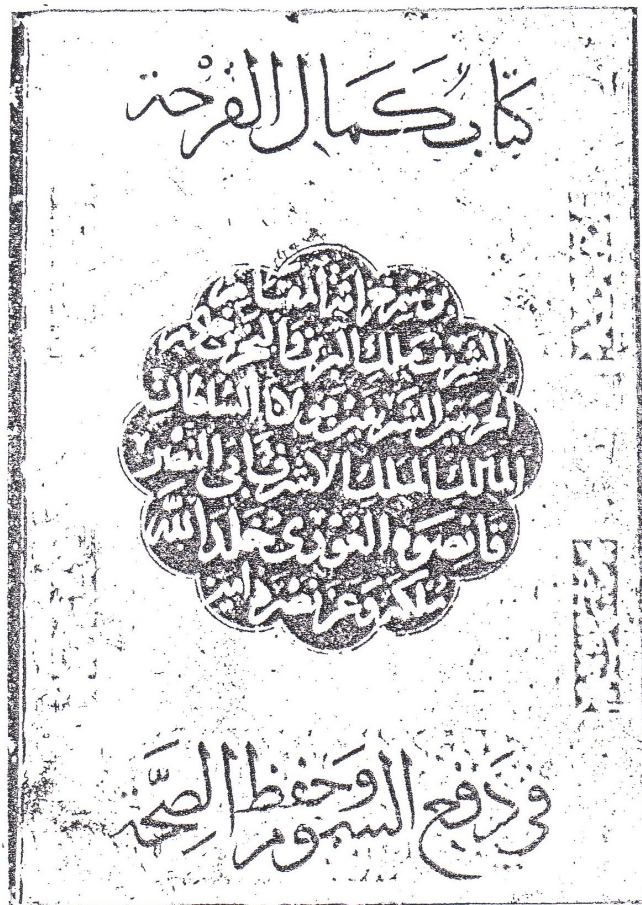 كتاب كمال الفرحة
برسم خزانة المقام
الشريف ملك البرين والبحرين خادم
الحرمين الشريفين مولانا السلطان
المالك الملك الأشرف أبي النصر
قانصوه الغوري خلد الله
ملكه وعز نصره آمين
في دفع السموم وحفظ الصحة